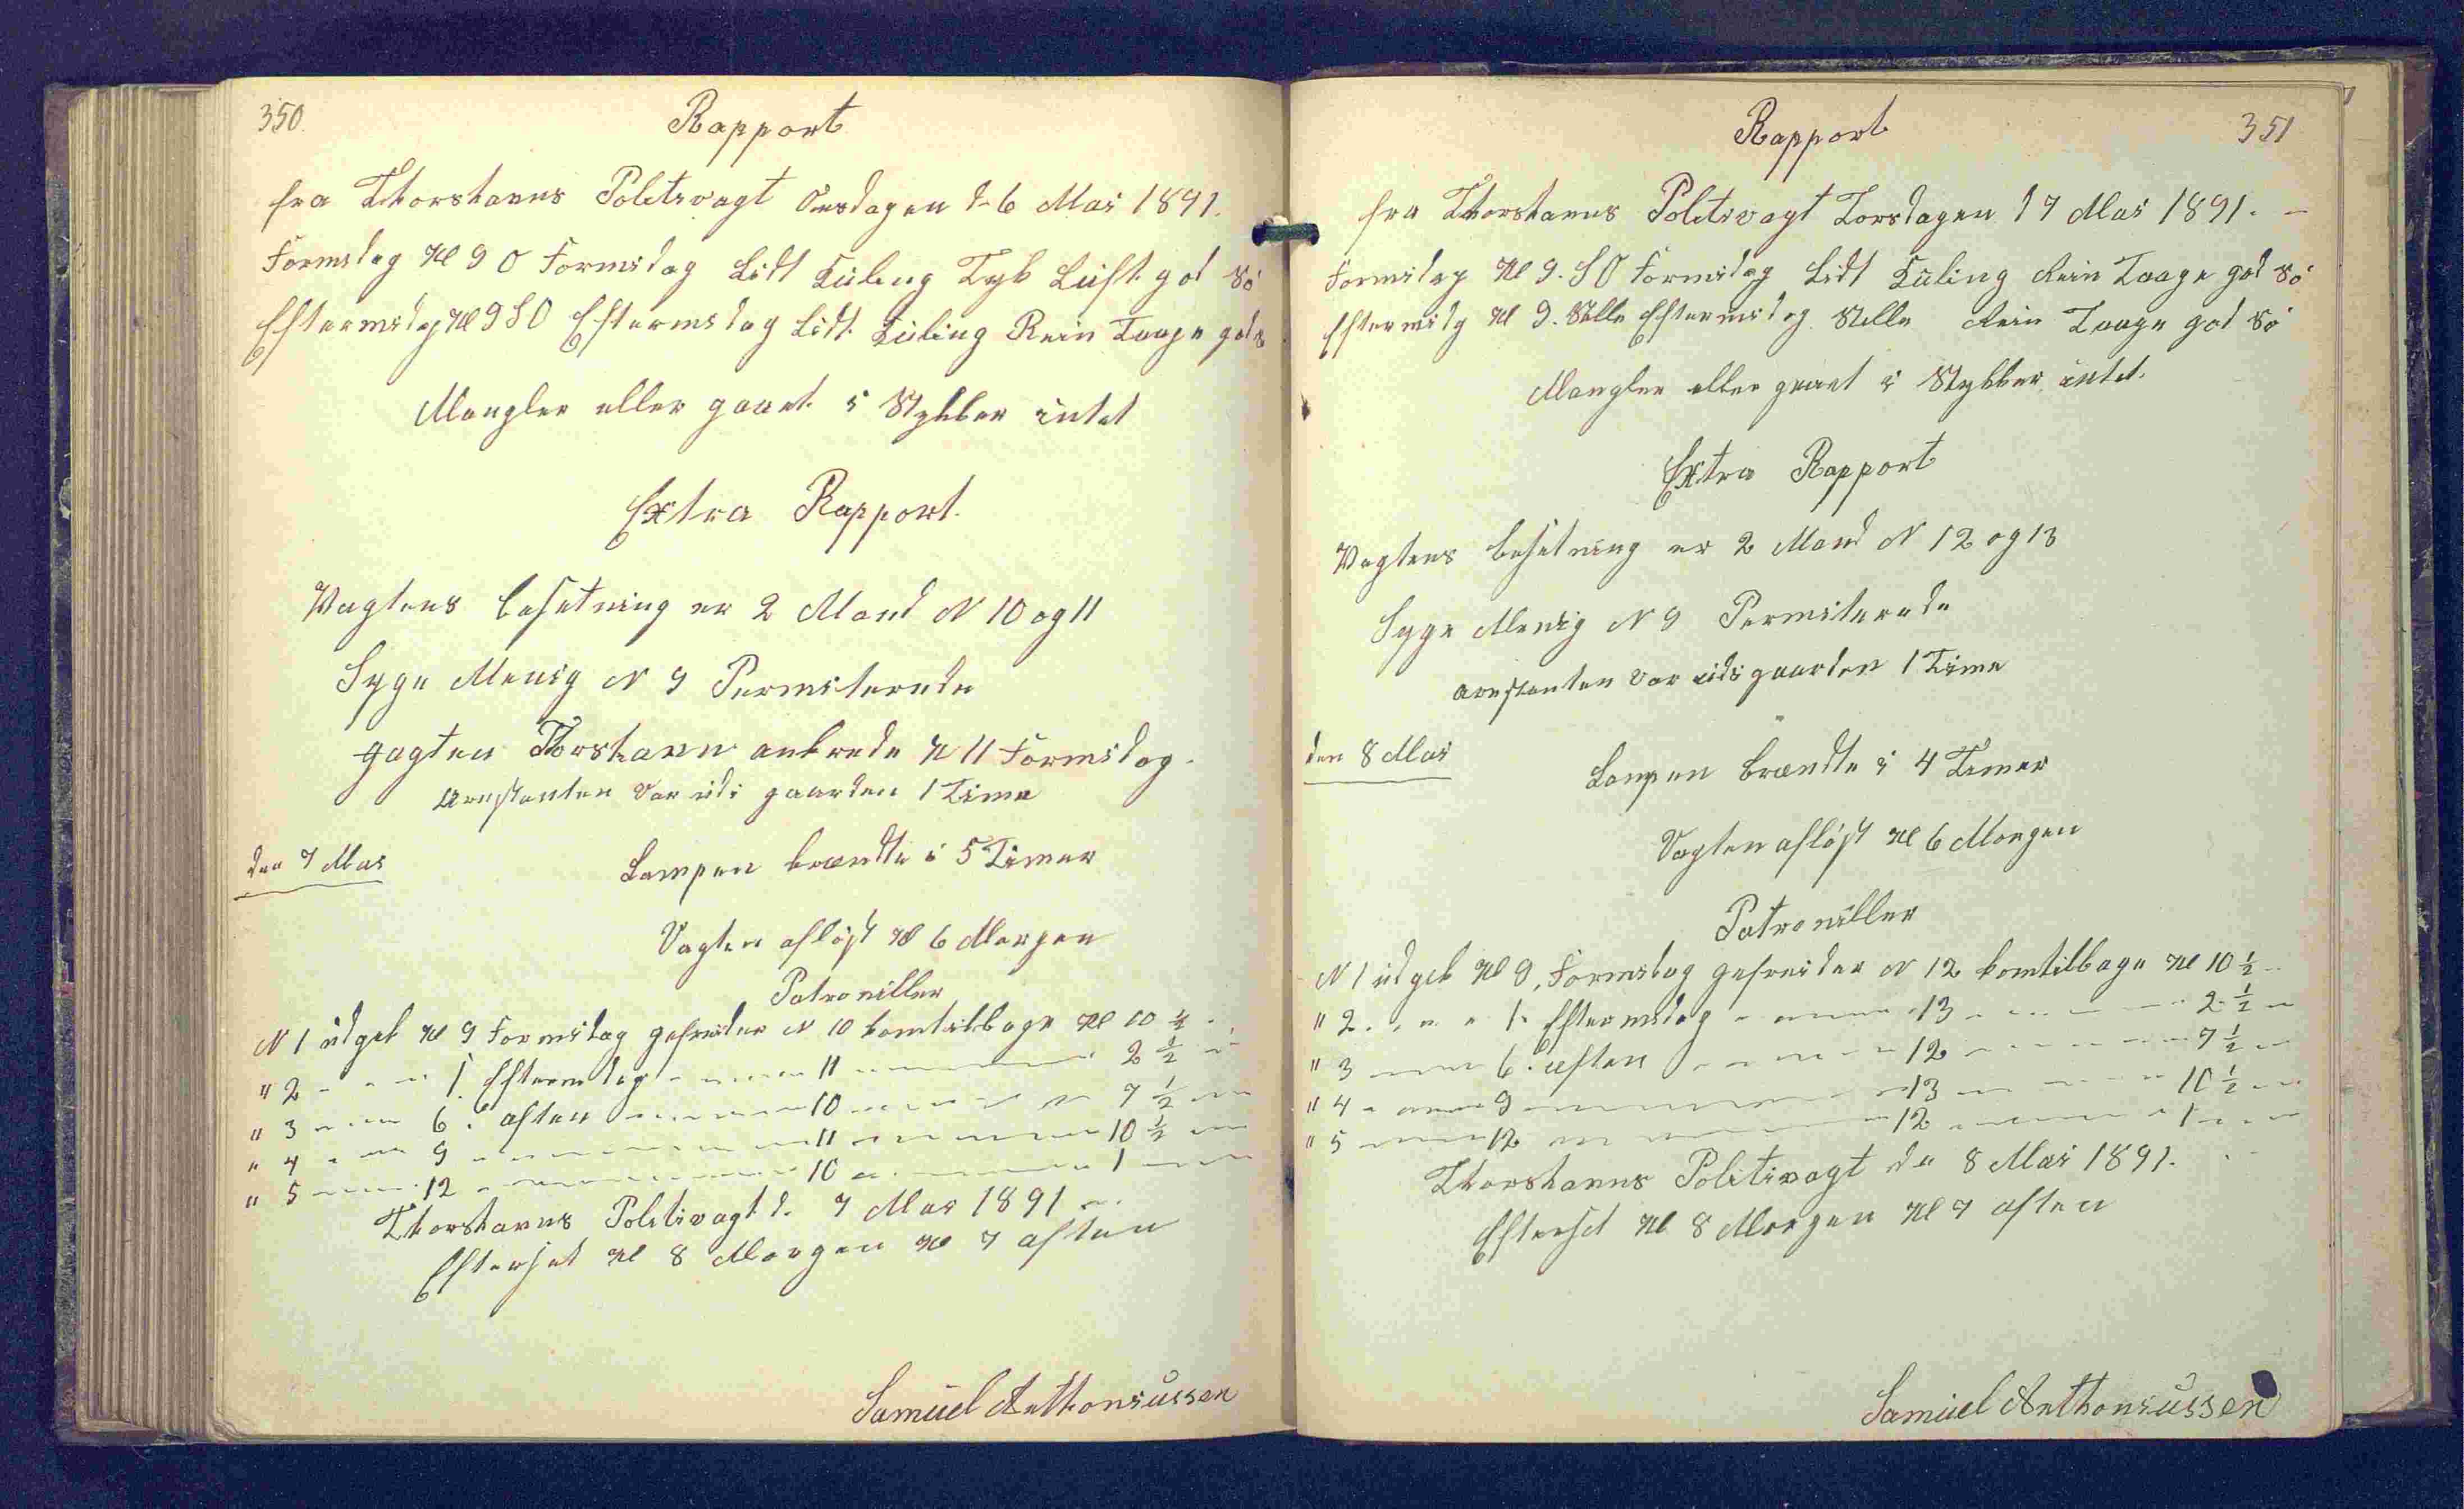 350
Rapport
fra Thorshavns Politivagt Onsdagen d 6 Mai 1891.
Formidag Kl 9 O Formidag Lidt Kuling Tyk Luft god Sö
Eftermidag Kl 9 SO Eftermidag Lidt Kuling Rein Taage god s
Mangler eller gaaet i Stykker intet
Extra Rapport.
Vagtens besetning er 2 Mand N 10 og 11
Syge Menig N 9 Permiterede
Jagten Thorshavn ankrede Kl 11 Formidag.
Arestanten var udi gaarden 1 Time
den 7 Mai
Lampen brændte i 5 Timer
Vagten afløst Kl 6 Morgen
Patrouiller
N 1 udgik Kl 9 Formidag gefreider N 10 kom tilbage Kl 10 ½
" 2 - - - 1. Eftermidag - - - 11 - - - 2 ½ -
" 3 - - - 6. aften - - - 10 - - - 7 ½ -
" 4 - - - 9 - - - 11 - - - 10 ½ -
" 5 - - - 12 - - - 10 - - - 1 - -
Thorshavns Politivagt d. 7 Mai 1891
Efterset Kl 8 Morgen Kl 7 aften
Samuel Anthoniussen
Rapport
351
fra Thorshavns Politivagt Torsdagen d 7 Mai 1891. -
Formidag Kl 9. SO Formidag Lidt Kuling Rein Taage god Sö
Eftermidg Kl 9. Stille Eftermidag Stille Rein Taage god Sö
Mangler eller gaaet i Stykker intet.
Extra Rapport
Vagtens besetning er 2 Mand N 12 og 13
Syge Menig N 9 Permiterede
arestanten var udi gaarden 1 Time
den 8 Mai
Lampen brændte i 4 Timer
Vagten afløst Kl 6 Morgen
Patrouiller
N 1 udgik Kl 9, Formidag gefreider N 12 kom tilbage Kl 10 ½
" 2 - - - 1. Eftermidag - - - 13 - - - 2 ½ -
" 3 - - - 6. aften - - - 12 - - - 7 ½ -
" 4 - - - 9 - - - 13 - - - 10 ½ -
" 5 - - - 12 - - - 12 - - - 1 - -
Thorshavns Politivagt de 8 Mai 1891.
Efterset Kl 8 Morgen Kl 7 aften
Samuel Anthoniussen